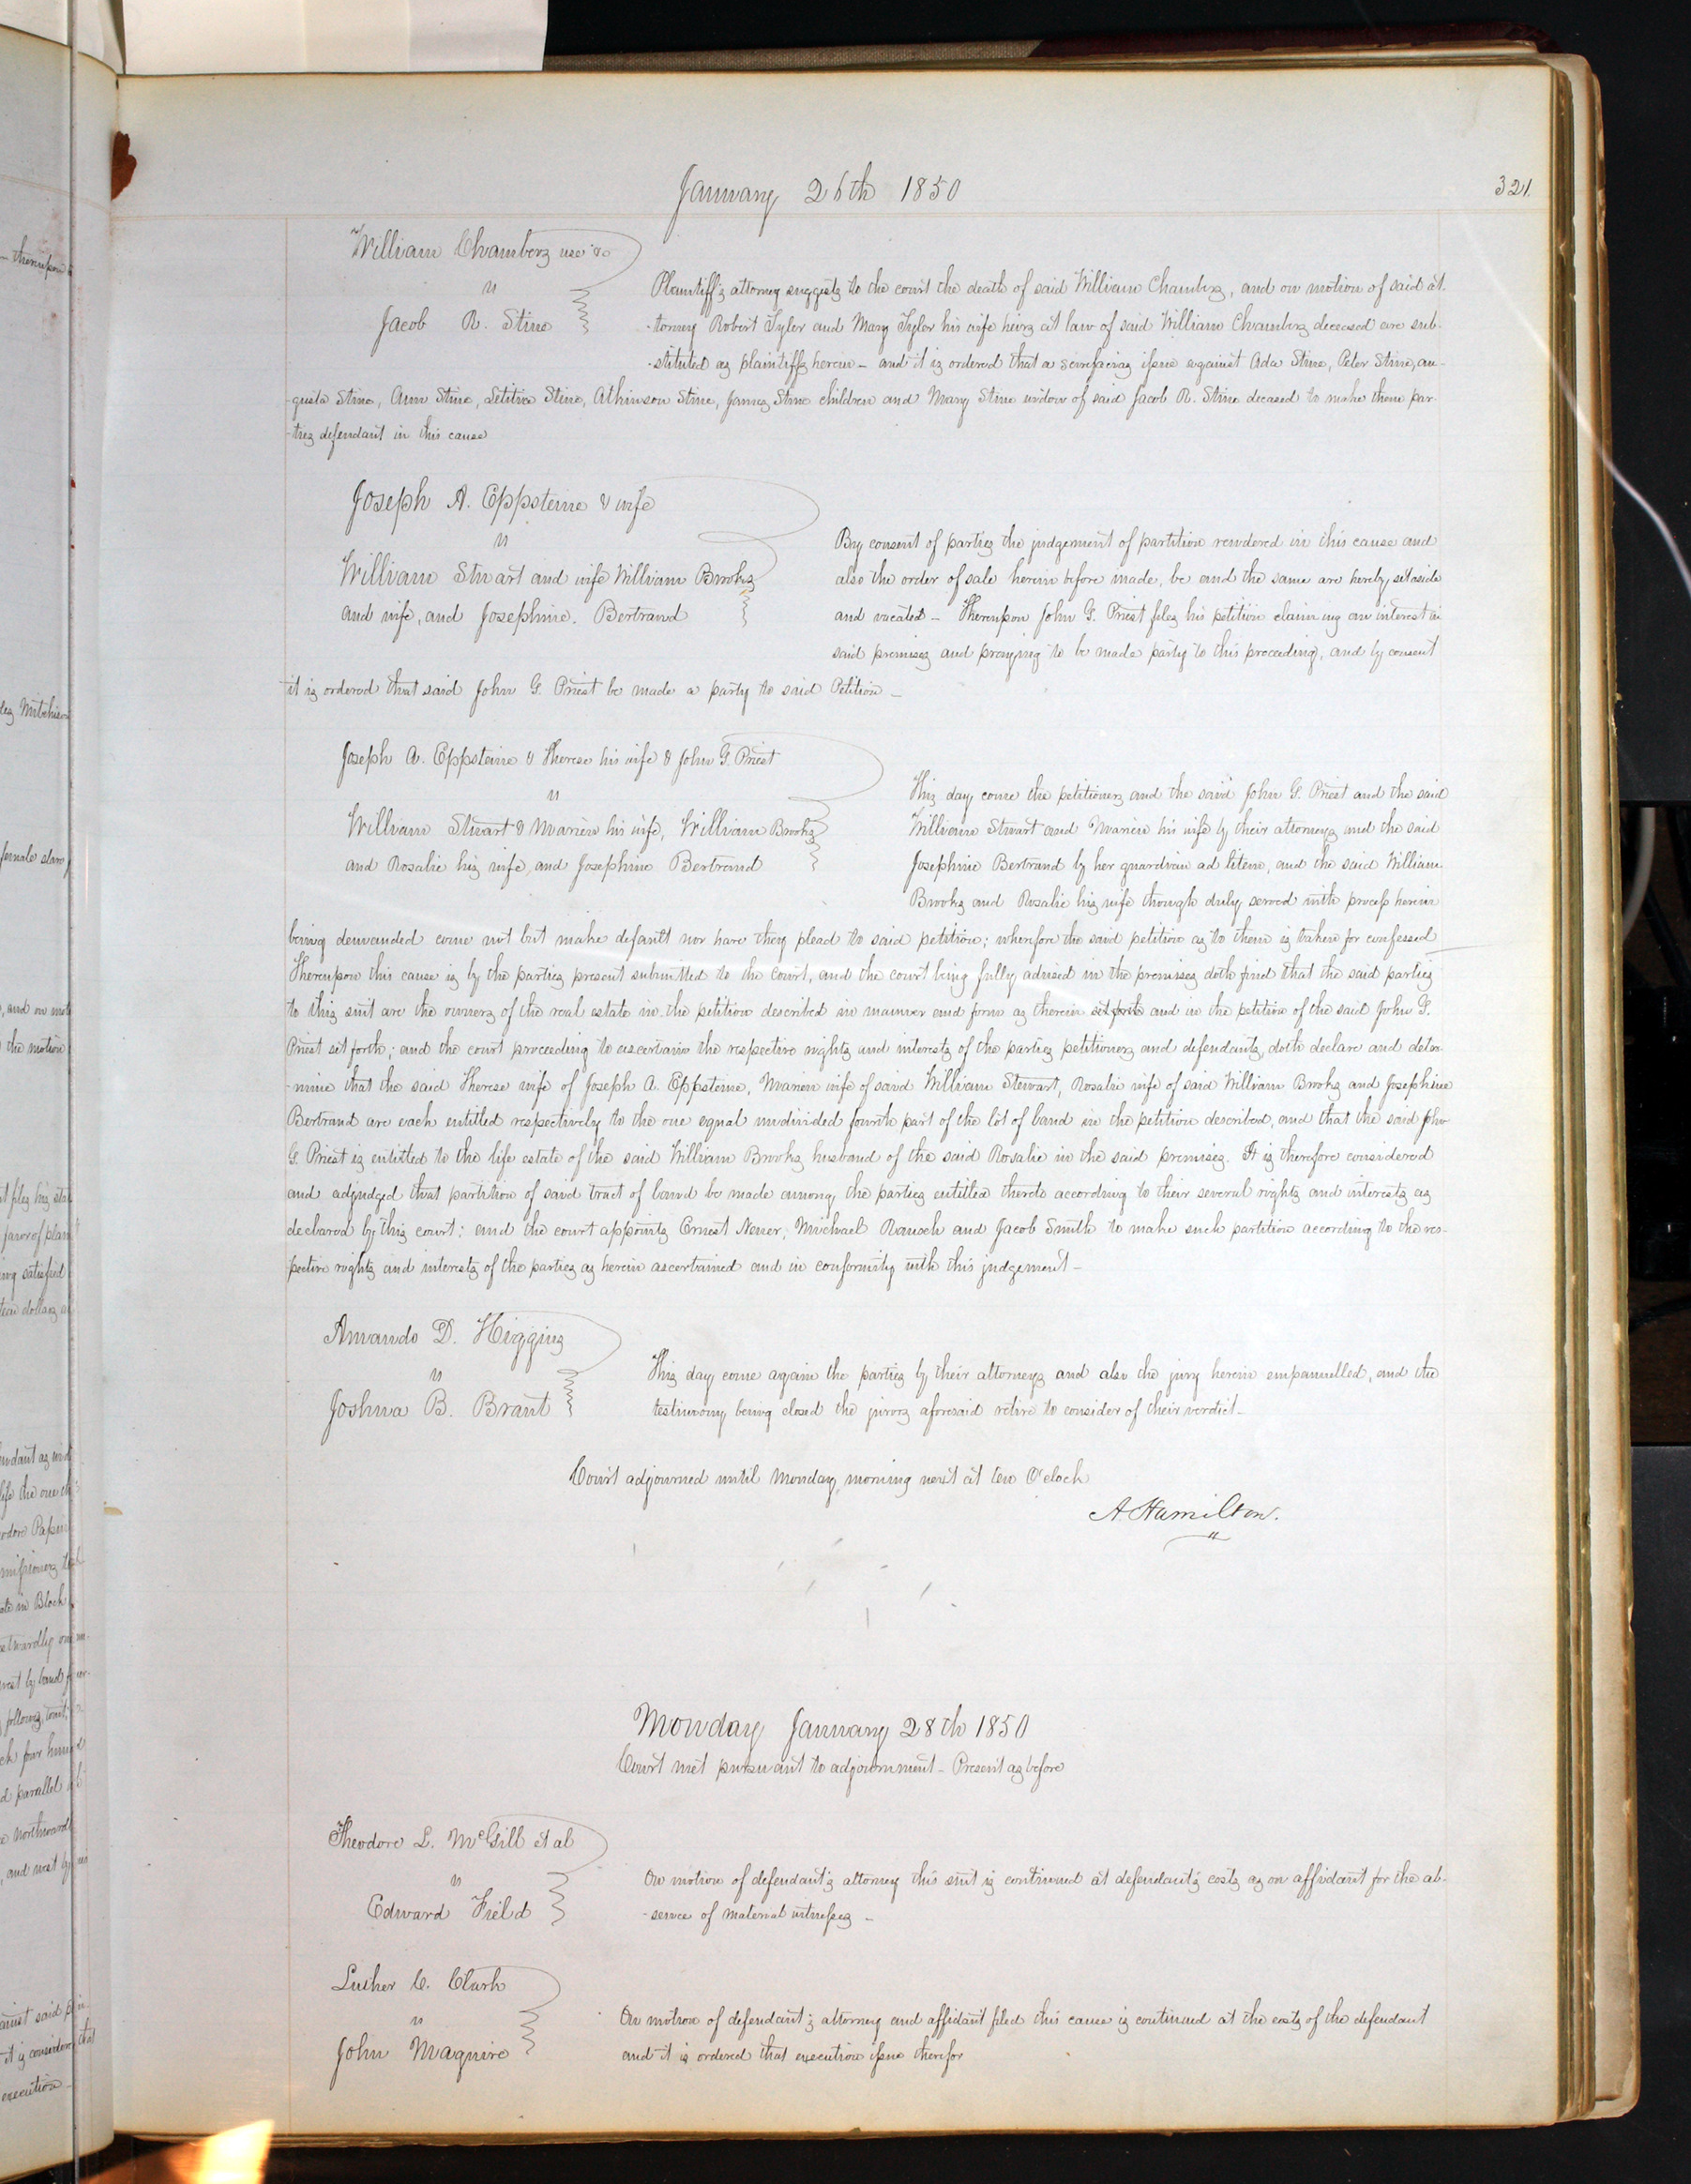 January 26th 1850
321.
William Chambers use &c
vs
Jacob R. Stine
Plaintiff's attorney suggests to the court the death of said William Chambers, and on motion of said at-
-torney Robert Tyler and Mary Tyler his wife heirs at law of said William Chambers deceased are sub-
-stituted as plaintiffs herein – and it is ordered that a scirefacias issue against Ada Stine, Peter Stine, au-
-gusta Stine, Ann Stine, Letitia Stine, Athinson Stine, James Stine children and Mary Stine widow of said Jacob R. Stine deceased to make them par-
-ties defendant in this cause
Joseph A. Eppsteine & wife
vs
William Stuart and wife William Brooks
and wife, and Josephine. Bertrand
By consent of parties the judgement of partition rendered in this cause and
also the order of sale herein before made, be and the same are hereby set aside
and vacated – Thereupon John G. Priest files his petition claiming an interest in
said premises and praying to be made party to this proceeding, and by consent
it is ordered that said John G. Priest be made a party to said Petition –
Joseph A. Eppsteine & Therese his wife & John G. Priest
vs
William Stuart & Marien his wife, William Brooks
and Rosalie his wife, and Josephine Bertrand
This day come the petitioners and the said John G. Priest and the said
William Stuart and Marien his wife by their attorneys and the said
Josephine Bertrand by her guardian ad litem, and the said William
Brooks and Rosalie his wife though duly served with process herein
being demanded come not but make default nor have they plead to said petition; wherefore the said petition as to them is taken for confessed
Thereupon this cause is by the parties present submitted to the court, and the court being fully advised in the premises doth find that the said parties
to this suit are the owners of the real estate in the petition described in manner and form as therein set forth and in the petition of the said John G.
Priest set forth; and the court proceeding to ascertain the respective rights and interests of the parties petitioners and defendants, doth declare and deter-
-mine that the said Therese wife of Joseph A. Eppsteine, Marien wife of said William Stewart, Rosalie wife of said William Brooks and Josephine
Bertrand are each entitled respectively to the one equal undivided fourth part of the lot of land in the petition described, and that the said John
G. Priest is entitled to the life estate of the said William Brooks husband of the said Rosalie in the said premises. It is therefore considered
and adjudged that partition of said tract of land be made among the parties entitled thereto according to their several rights and interests as
declared by this court: and the court appoints Ernest Neuer, Michael Rausch and Jacob Smith to make such partition according to the res-
pective rights and interests of the parties as herein ascertained and in conformity with this judgement –
Amando D. Higgins
vs
Joshua B. Brant
This day come again the parties by their attorneys and also the jury herein empannelled, and the
testimony being closed the jurors aforesaid retire to consider of their verdict –
Court adjourned until Monday morning next at ten O'clock
A. Hamilton.
Monday January 28th 1850
Court met pursuant to adjournment – Present as before
Theodore L. McGill et al
vs
Edward Field
On motion of defendant's attorney this suit is continued at defendant's costs as on affidavit for the ab-
-sence of material witnesses –
Luther C. Clark
vs
John Maguire
On motion of defendant's attorney and affidavit filed this cause is continued at the costs of the defendant
and it is ordered that execution issue therefor